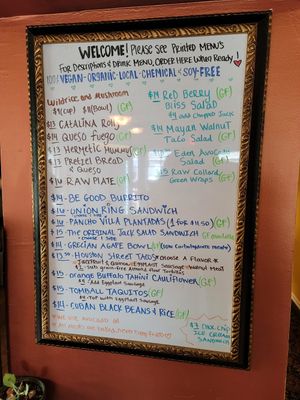 WELCOME! Please See Printed MENU's
For Descriptions & Drink MENU, ORDER HERE When Ready!
100% VEGAN-ORGANIC-LOCAL-CHEMICAL & SOY-FREE
Wildrice and Mushroom
(Cup) $11(Bowl) (GF)
$13 CATALINA Roll
$14 Queso fuego (GF)
$13 Hermetic Hummus
$13 Pretzel Bread
& Queso
RAW PLATE (GF)
$14 Red Berry (GF)
Bliss Salad
add Chopped Jack
$14 Mayan Walnut
Taco Salad (GF)
Eden Avocado
Salad (GF)
$15 Raw Collard
Green Wraps (GF)
$14- BE GOOD BURRITO
$16- UNION RING SANDWICH
$14- PANCHO VILLA PLANTADAS (4 for $11.50) (GF)
$15- The ORIGINAL JACK SALAD SANDWICH
choose 1 side
$14- GRECIAN AGAPE BOWL (Some Carbohydrates)
$13.50- HOUSTON STREET TACOS choose A Flavor
$15- Orange Buffalo TAHINI CAULIFLOWER (GF)
Add Eggplant Sausage
$15- TOMBALL TAQUITOS (GF)
Top with Eggplant Sausage
$14- CUBAN BLACK BEANS & RICE (GF)
We use avocado oil
$7 Choc. Chip
ICE CREAM
SANDWICH